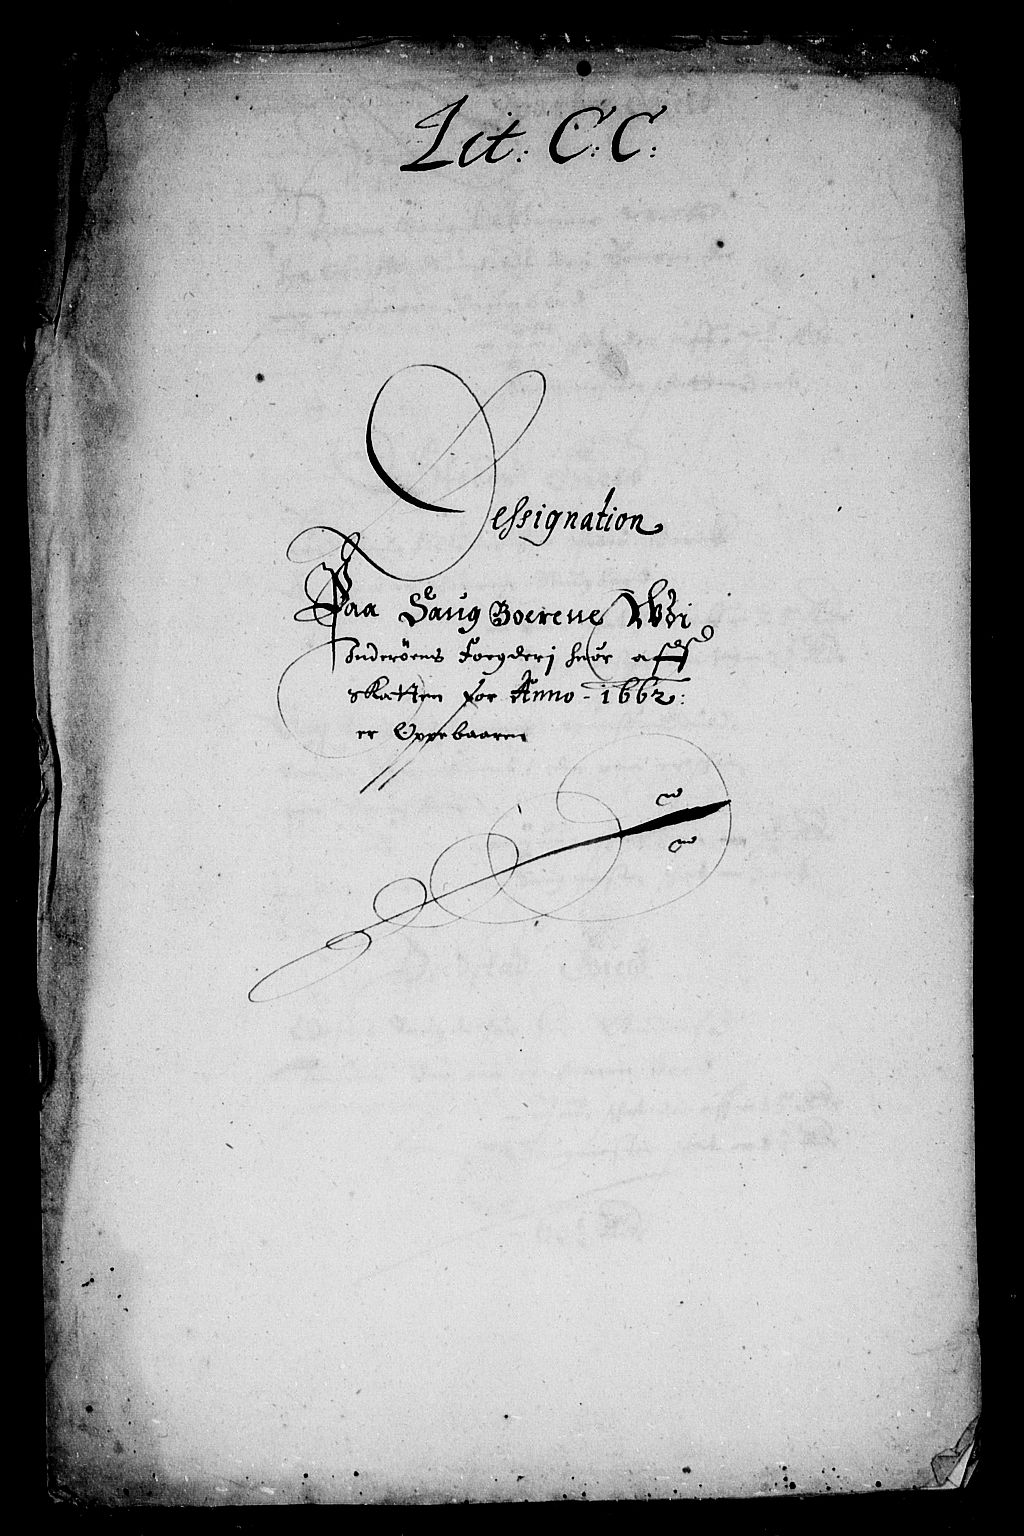 Lit: C: C:
Dessignation
Paa Saug Boerene Udj
Inderöens Foegderj huor aff
skatten for Anno - 1662:
er Oppebaaren